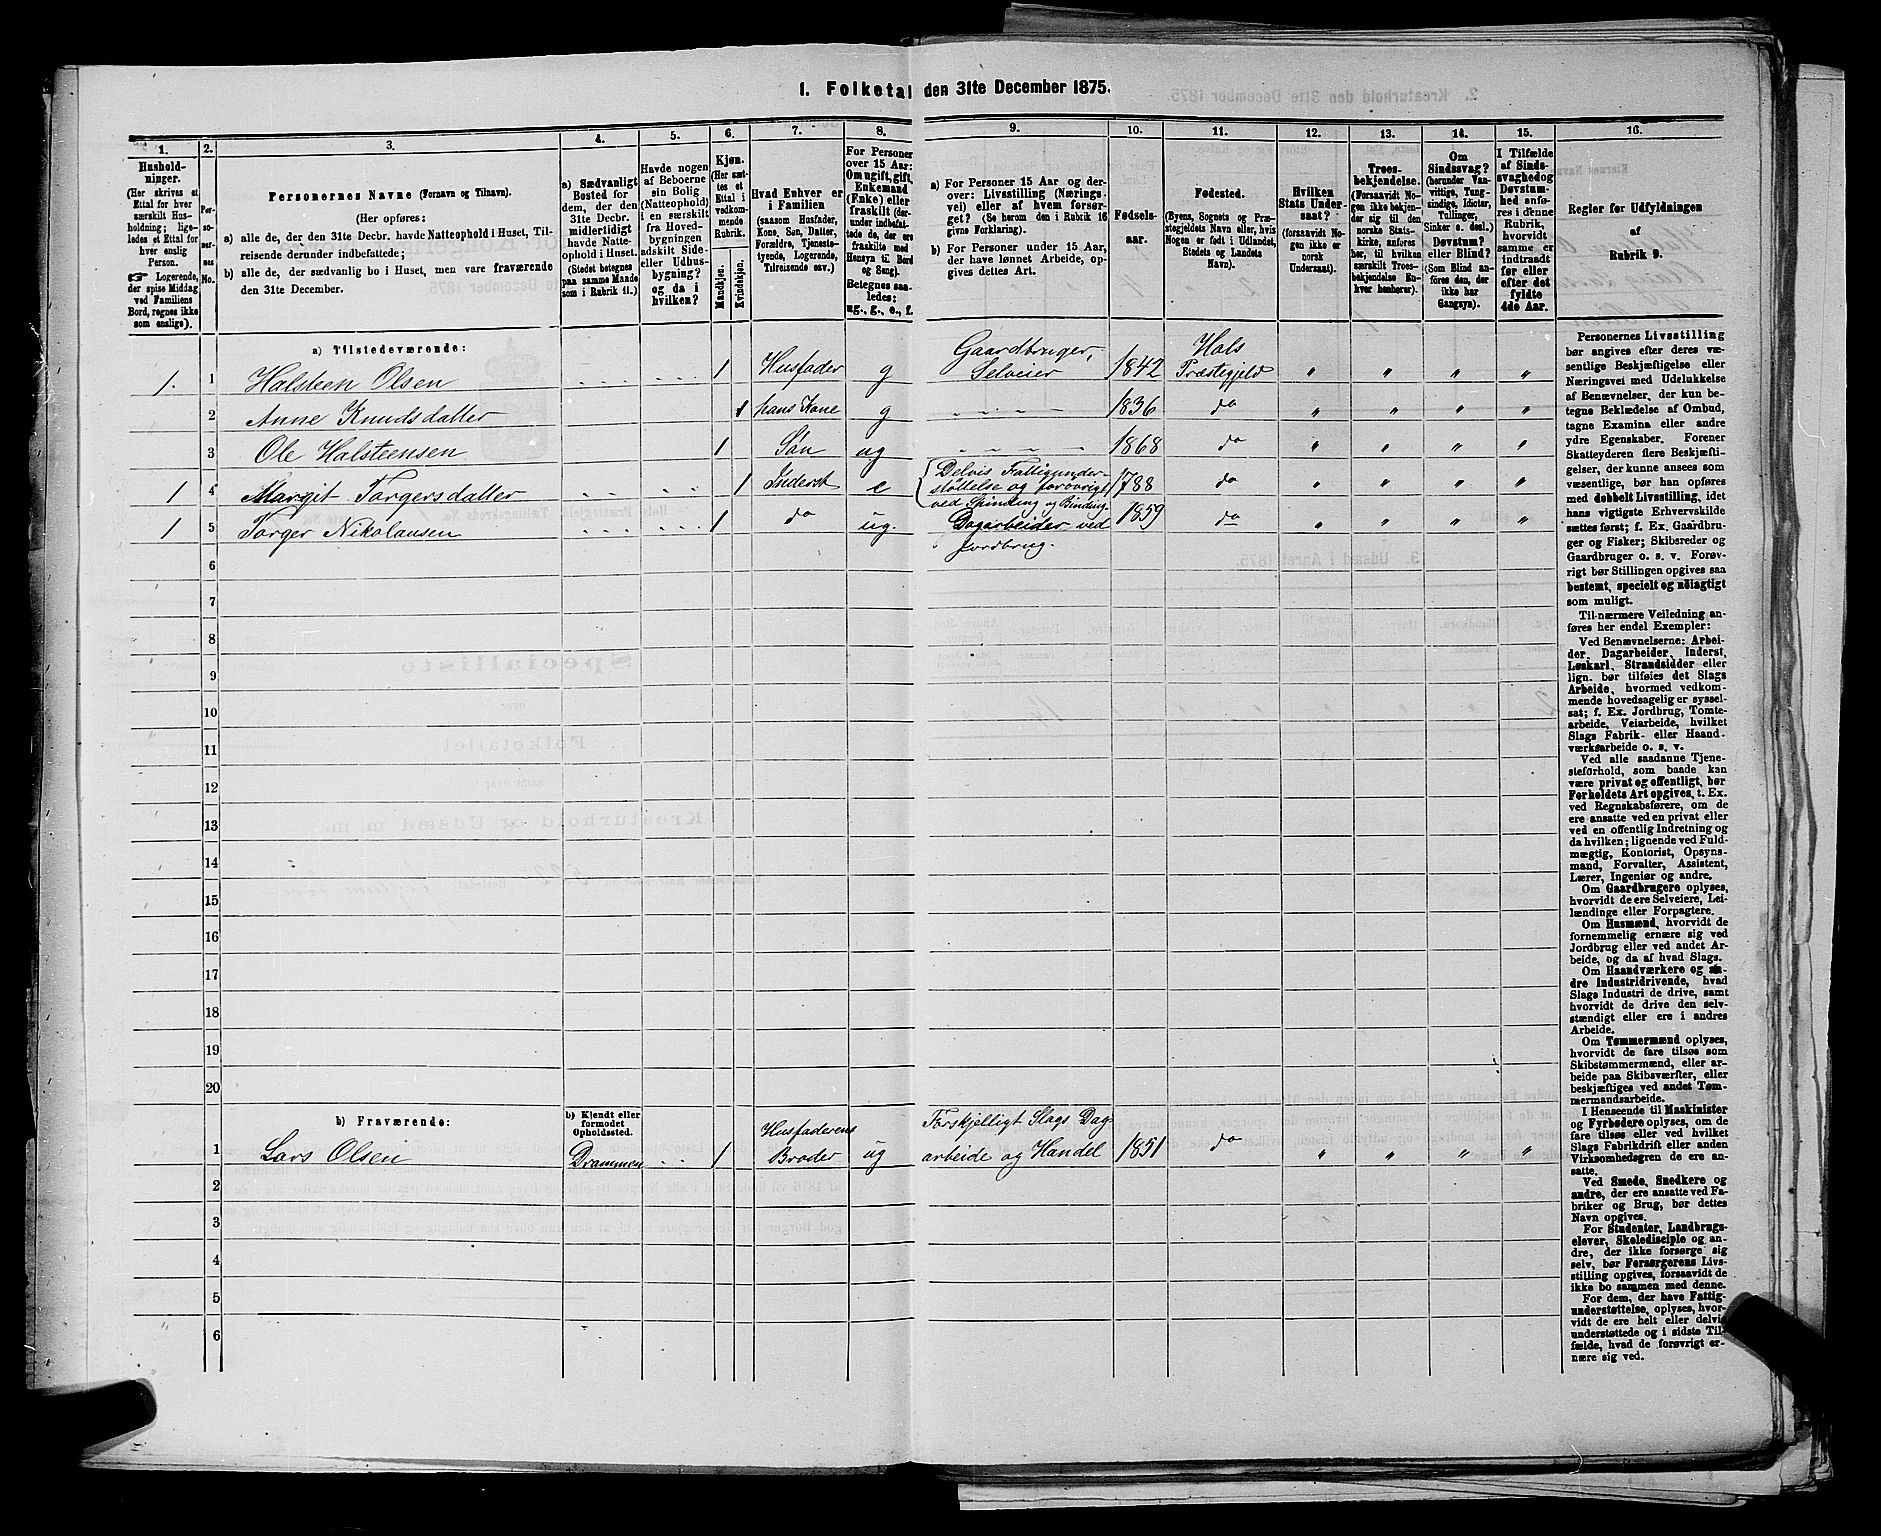 1. Folketal den 31te December 1875.
1.
2.
3.
4.
5.
6.
7.
8.
9.
10.
11.
12.
13.
14.
15.
16.
Hushold-
ninger.
(Her skrives et
Ettal for hver
særskilt Hus-
holdning; lige-
ledes et Ettal for
hver enslig
Person.
☞ Logerende,
der spise Middag
ved Familiens
Bord, regnes ikke
som enslige).
Per-
so-
ner-
nes
No.
Personernes Navne (Fornavn og Tilnavn).
(Her opføres:
a) alle de, der den 31te Decbr. havde Natteophold i Huset, Til-
reisende derunder indbefattede;
b) alle de, der sædvanlig bo i Huset, men vare fraværende
den 31te December.
a) Sædvanligt
Bosted for
dem, der den
31te Decbr.
midlertidigt
havde Natte-
ophold i Huset.
(Stedet betegnes
paa samme Maade
som i Rubrik 11.)
Havde nogen
af Beboerne
sin Bolig
(Natteophold)
i en særskilt
fra Hoved-
bygningen
adskilt Side-
eller Udhus-
bygning?
og da i
hvilken?
Kjøn.
(Her sæt-
tes et
Ettal i
vedkom-
mende
Rubrik.
Mandkjøn.
Kvindekjøn.
Hvad Enhver er
i Familien
(saasom Husfader,
Kone, Søn, Datter,
Forældre, Tjeneste-
tyende, Logerende,
Tilreisende osv.)
For Personer
over 15 Aar:
Om ugift, gift,
Enkemand
(Enke) eller
fraskilt (der-
under indbefat-
tede de, der ere
fraskilte med
Hensyn til Bord
og Seng).
Betegnes saa-
ledes:
ug., g., e., f.
a) For Personer 15 Aar og der-
over: Livsstilling (Nærings-
vei) eller af hvem forsør-
get? (Se herom den i Rubrik 16
givne Forklaring).
b) For Personer under 15 Aar,
der have lønnet Arbeide, op-
gives dettes Art.
Fødsels-
aar.
Fødested.
(Byens, Sognets og Præ-
stegjeldets Navn eller, hvis
Nogen er født i Udlandet,
Stedets og Landets
Navn).
Hvilken
Stats Under-
saat?
(forsaavidt No-
gen ikke er
norsk
Undersaat).
Troes-
bekjendelse.
(Forsaavidt No-
gen ikke bekjen-
der sig til den
norske Stats-
kirke, anføres
her, til hvilken
særskilt Troes-
bekjendelse En-
hver henhører).
Om
Sindssvag?
(herunder Van-
vittige, Tung-
sindige, Idioter,
Tullinger,
Sinker o. desl.)
Døvstum?
eller Blind?
(Som Blind an-
føres den, der
ikke har
Gangsyn).
I Tilfælde
af Sinds-
svaghed og
Døvstum-
hed anfø-
res i denne
Rubrik,
hvorvidt
samme er
indtraadt
før eller
efter det
fyldte
4de Aar.
Regler for Udfyldningen
af
Rubrik 9.
a) Tilstedeværende:
1. 1 Halsteen Olsen - - - - - - - 1 Husfader g Gaardbruger, Selveier 1842 Hals Præstegjeld " " " "
2 Anne Knudsdatter 1 hans Kone g - - - - 1836 do " " " "
3 Ole Halsteensen 1 Søn ug - - - - 1868 do " " " "
1 4 Margit Torgersdatter - - - - - - - 1 Inderst e Delvis Fattigunder-
støttelse og forøvrigt 1788 do " " " "
ved Spinding og Binding.
1 5 Torger Nikolausen - - - - - - - 1 do ug. Dagarbeider ved 1859 do " " " "
Jordbrug.
6
7
8
9
10
11
12
13
14
15
16
17
18
19
20
b) Fraværende:
b) Kjendt eller
formodet
Opholdssted.
1 Lars Olsen Drammen - - 1 Husfaderens Broder ug Forskjelligt Slags Dag-
arbeide og Handel 1851 do " " " "
2
3
4
5
6
Personernes Livsstilling
bør angives efter deres væ-
sentlige Beskjæftigelse eller
Næringsvei med Udelukkelse
af Benævnelser, der kun be-
tegne Beklædelse af Ombud,
tagne Examina eller andre
ydre Egenskaber. Forener
Skatteyderen flere Beskjæfti-
gelser, der kunne ansees som
væsentlige, bør han opføres
med dobbelt Livsstilling, idet
hans vigtigste Erhvervskilde
sættes først; f. Ex. Gaardbru-
ger og Fisker; Skibsreder og
Gaardbruger o. s. v. Forøv-
rigt bør Stillingen opgives saa
bestemt, specielt og nöiagtigt
som muligt.
Til nærmere Veiledning an-
føres her endel Exempler:
Ved Benævnelserne: Arbei-
der, Dagarbeider, Inderst,
Løskarl, Strandsidder eller
lign. bør tilføies det Slags
Arbeide, hvormed vedkom-
mende hovedsagelig er syssel-
sat; f. Ex. Jordbrug, Tomte-
arbeide, Veiarbeide, hvilket
Slags Fabrik- eller Haand-
værksarbeide o. s. v.
Ved alle saadanne Tjene-
steforhold, som baade kan
være privat og offentligt, bør
Forholdets Art opgives, t. Ex.
ved Regnskabsførere, om de
ere ansatte ved en privat eller
ved en offentlig Indretning og
da hvilken; lignende ved Fuld-
mægtig, Kontorist, Opsyns-
mand, Forvalter, Assistent,
Lærer, Ingeniør og andre.
Om Gaardbrugere oplyses,
hvorvidt de ere Selveiere, Lei-
lændinge eller Forpagtere.
Om Husmænd, hvorvidt de
fornemmelig ernære sig ved
Jordbrug eller ved andet Ar-
beide, og da af hvad Slags.
Om Haandværkere og an-
dre Industridrivende, hvad
Slags Industri de drive, samt
hvorvidt de drive den selv-
stændigt eller ere i andres
Arbeide.
Om Tømmermænd oplyses,
hvorvidt de fare tilsøs som
Skibstømmermænd, eller ar-
beide paa Skibsværfter, eller
beskjæftiges ved andet Tøm-
mermandsarbeide.
I Henseende til Maskinister
og Fyrbødere oplyses, om de
fare tilsøs eller ved hvilket
Slags Fabrikdrift eller anden
Virksomhedsgren de ere an-
satte.
Ved Smede, Snedkere og
andre, der ere ansatte ved Fa-
briker og Brug, bør dettes
Navn opgives.
For Studenter, Landbrugs-
elever, Skoledisciple og an-
dre, der ikke forsørge sig
selv, bør Forsørgerens Livs-
stilling opgives, forsaavidt de
ikke bo sammen med denne.
For dem, der have Fattig-
understøttelse, oplyses, hvor-
vidt de ere helt eller delvis
understøttede og i sidste Til-
fælde, hvad de forøvrigt er-
nære sig ved.